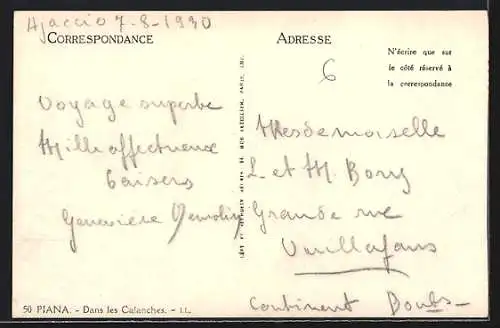 Ajaccio 7-8-1930
CORRESPONDANCE
Voyage superbe
Mille affectueux
baisers
Geneviève Demolin
50 PIANA. - Dans les Calanches. - LL.
ADRESSE
N'écrire que sur
le côté réservé à
la correspondance
6
Mesdemoiselle
L et M. Bony
Grande rue
Vuillafans
Continent Doubs